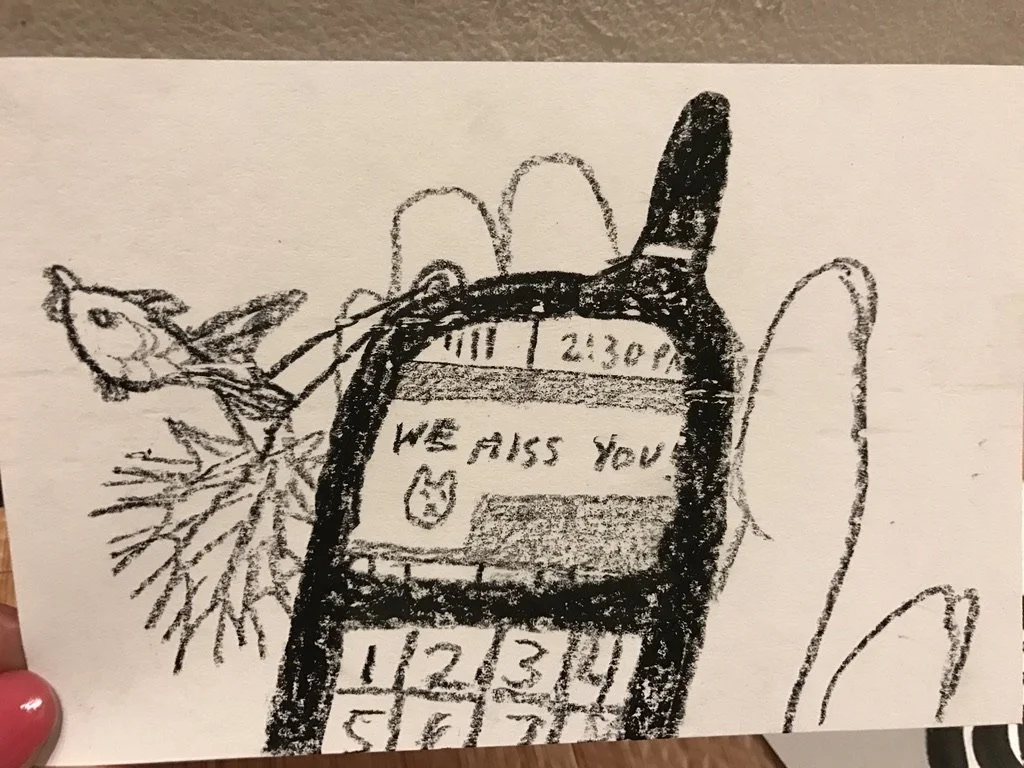 2:30 PM
WE MISS YOU
1 2 3 4
5 6 7